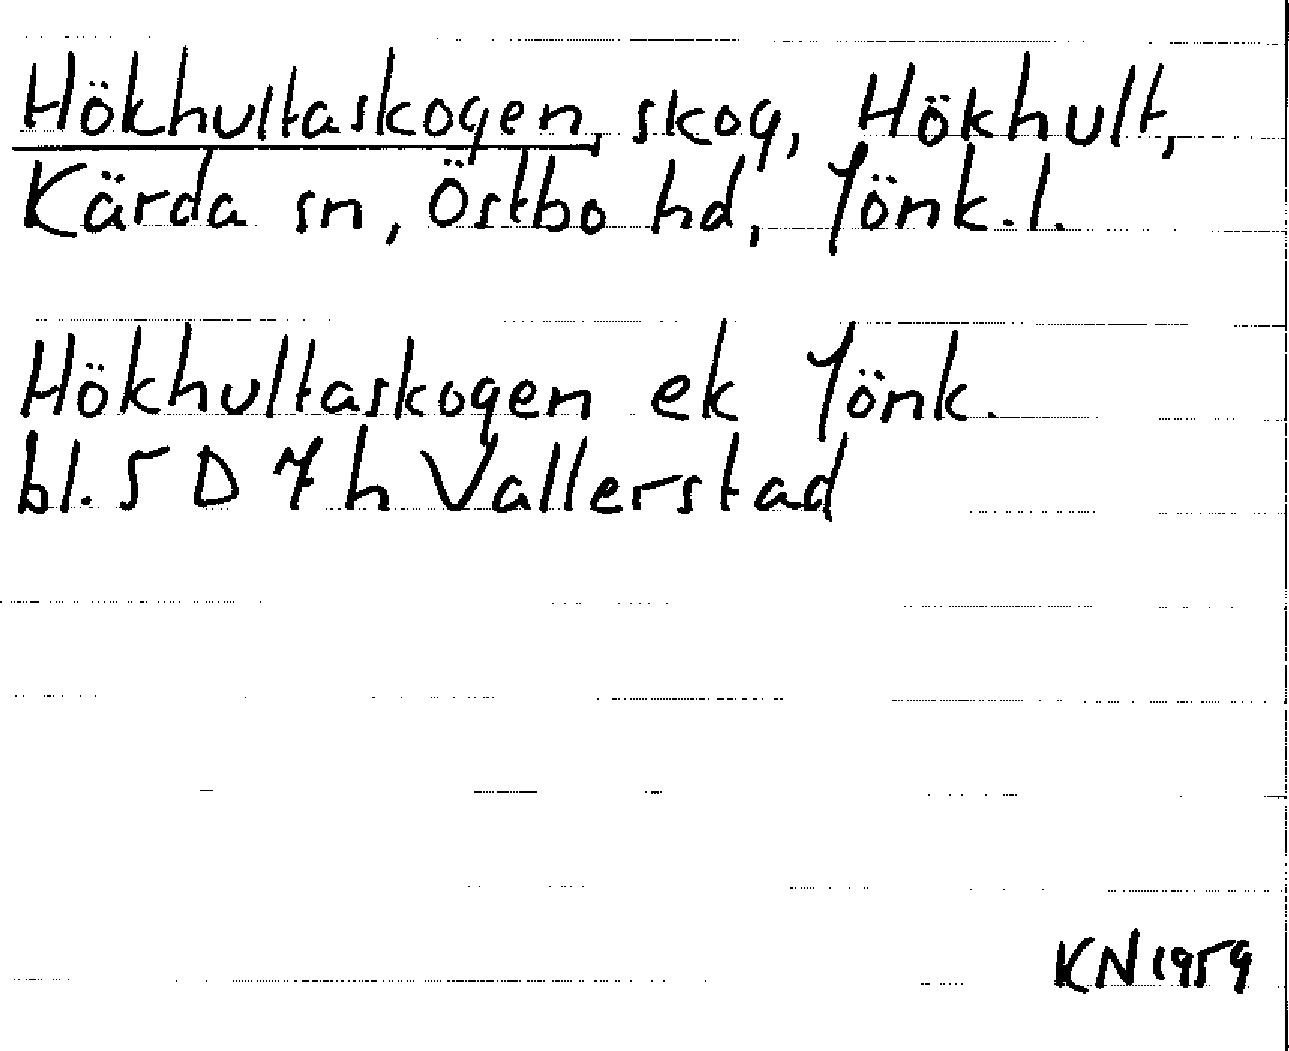 Hökhultaskogen, skog, Hökhult,
Kärda sn, Östbo hd, Jönk.l.
Hökhultaskogen ek Jönk.
bl. 5 D 7 h Vallerstad
KN 1959